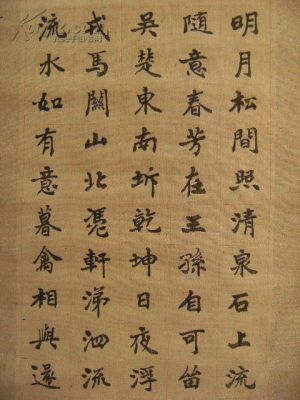 明月松間照清泉石上流
隨意春芳在王孫自可留
吳楚東南坼乾坤日夜浮
戎馬關山北憑軒涕泗流
流水如有意暮禽相與還